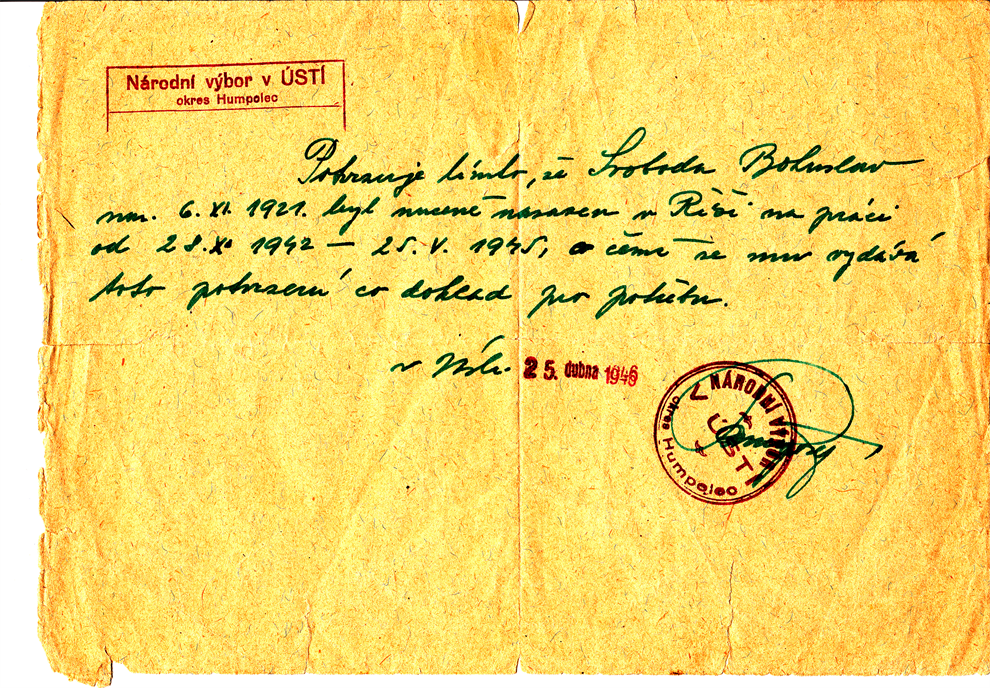 Národní výbor v ÚSTÍ
okres Humpolec
Potvrzuje tímto, že Svoboda Bohuslav
nar. 6. XI. 1921. byl nuceně nasazen v Říši na práci
od 28. X. 1942 – 25. V. 1945, o čemž se mu vydává
toto potvrzení co doklad pro potřebu.
v Ústí. 25. dubna 1946
NÁRODNÍ VÝBOR
V ÚSTÍ
okres Humpolec